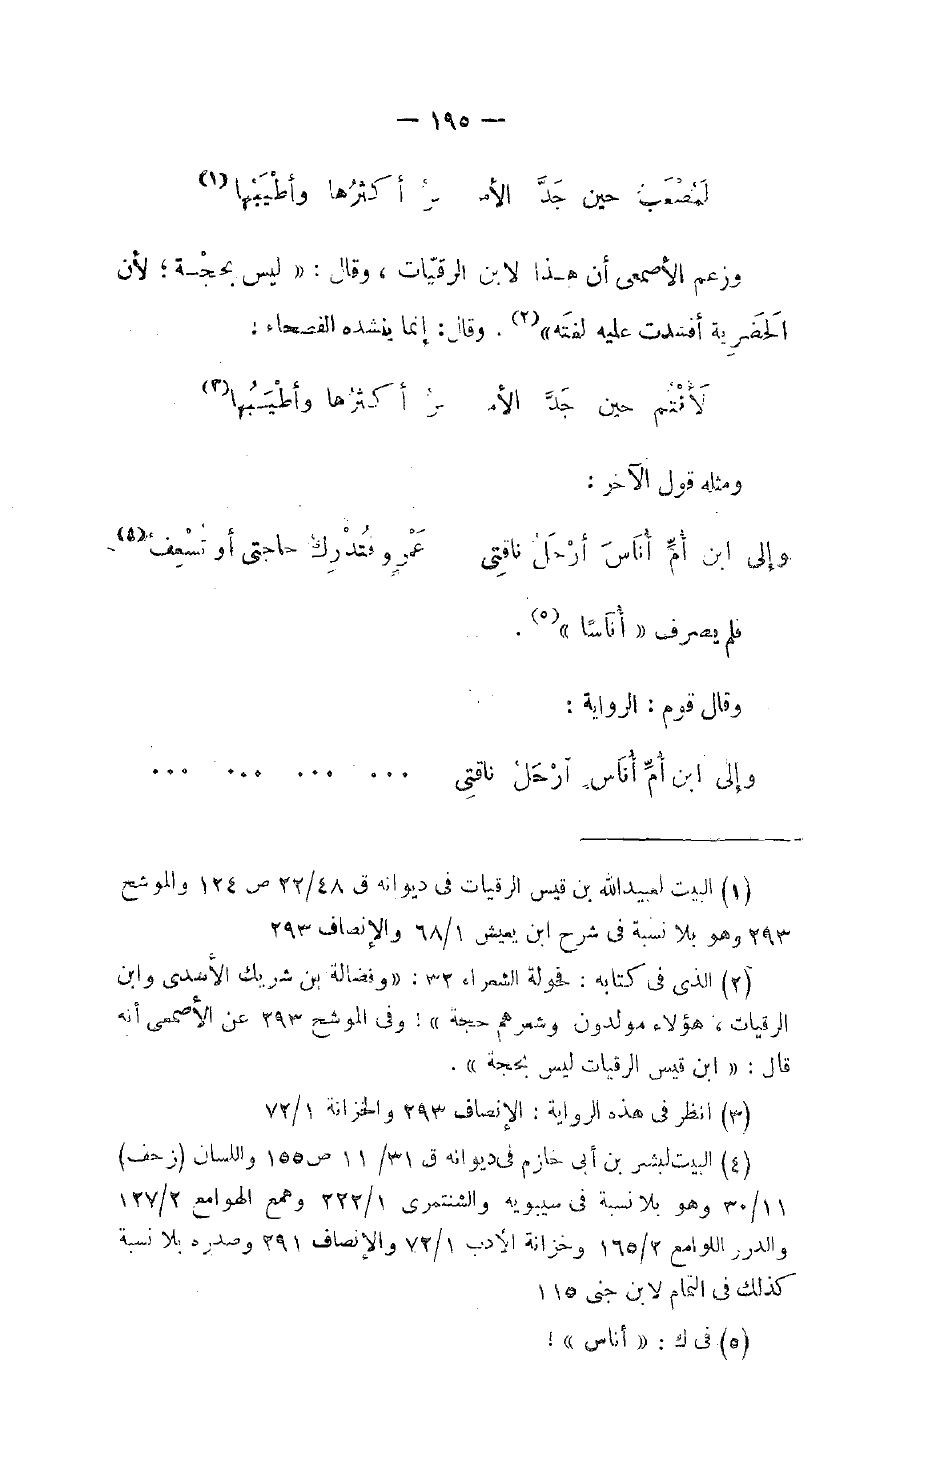 — ١٩٥ —
لَمُصْعَبُ حين جَدَّ الأمـ ـرُ أكثرُها وأطْيَبُها(١)
وزعم الأصمعى أن هـذا لابن الرقيّات ، وقال : « ليس بحجّـة ؛ لأن
الحَضَرِية أفسدت عليه لغتَه»(٢) . وقال : إنما ينشده الفصحاء :
لَأَنْتُم حين جَدَّ الأمـ ـرُ أكثرُها وأطْيَبُها(٣)
ومثله قول الآخر :
وإلى ابن أُمِّ أُنَاسَ أرْحَلُ ناقتِى عَمْرٍو فتُدْرِكُ حاجتى أو تُسْعِفُ(٤)
فلم يصرف « أُنَاسًا »(٥) .
وقال قوم : الرواية :
وإلى ابن أُمِّ أُنَاسٍ آرْحَلُ ناقتِى ... ... ... ...
(١) البيت لعبيدالله بن قيس الرقيات فى ديوانه ق ٢٢/٤٨ ص ١٢٤ والموشح
٢٩٣ وهو بلا نسبة فى شرح ابن يعيش ٦٨/١ والإنصاف ٢٩٣
(٢) الذى فى كتابه : فحولة الشعراء ٣٢ : «وفضالة بن شريك الأسدى وابن
الرقيات ، هؤلاء مولدون وشعرهم حجة » ! وفى الموشح ٢٩٣ عن الأصمعى أنه
قال : « ابن قيس الرقيات ليس بحجة » .
(٣) انظر فى هذه الرواية : الإنصاف ٢٩٣ والخزانة ٧٢/١
(٤) البيت لبشر بن أبى خازم فى ديوانه ق ٣١/ ١١ ص ١٥٥ واللسان (زحف)
٣٠/١١ وهو بلا نسبة فى سيبويه والشنتمرى ٢٢٢/١ وهمع الهوامع ١٢٧/٢
والدرر اللوامع ١٦٥/٢ وخزانة الأدب ٧٢/١ والإنصاف ٢٩١ وصدره بلا نسبة
كذلك فى التمام لابن جنى ١١٥
(٥) فى ك : « أناس » !